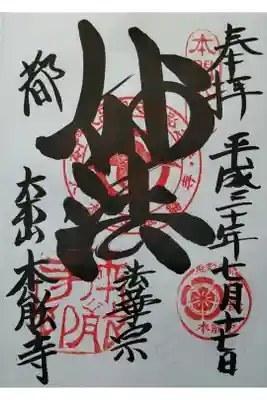 奉拝
平成三十年七月十七日
妙法
法華宗
都
大本山 本能寺